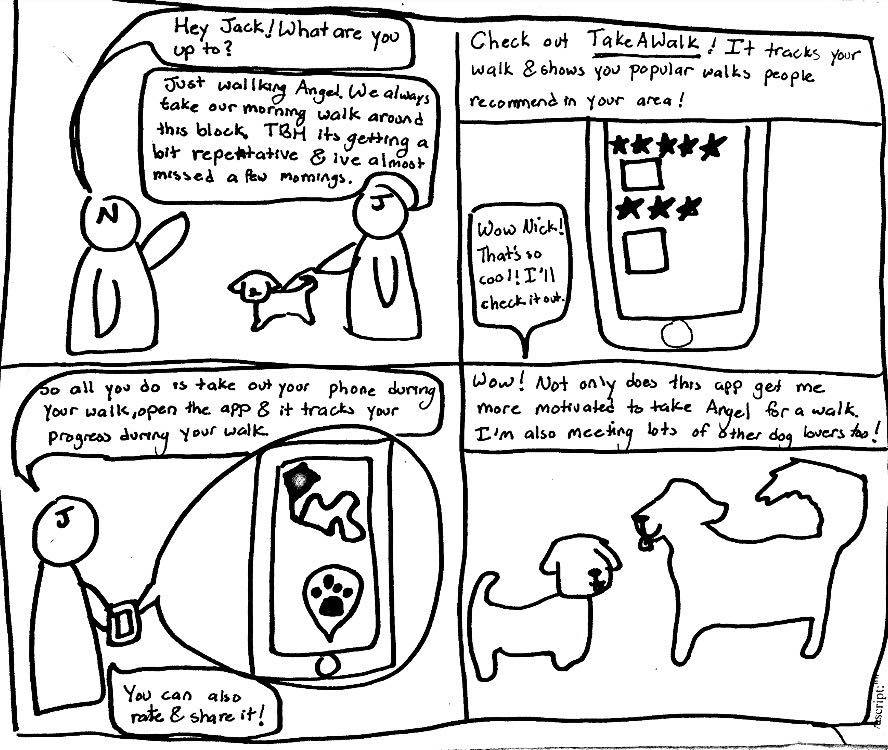 Hey Jack! What are you
up to?
Just wallking Angel. We always
take our morning walk around
this block. TBH its getting a
bit repetitative & ive almost
missed a few mornings.
N
J
Check out TakeAWalk! It tracks your
walk & shows you popular walks people
recommend in your area!
Wow Nick!
That's so
cool! I'll
check it out.
So all you do is take out your phone during
your walk, open the app & it tracks your
progress during your walk.
J
You can also
rate & share it!
Wow! Not only does this app get me
more motivated to take Angel for a walk.
I'm also meeting lots of other dog lovers too!